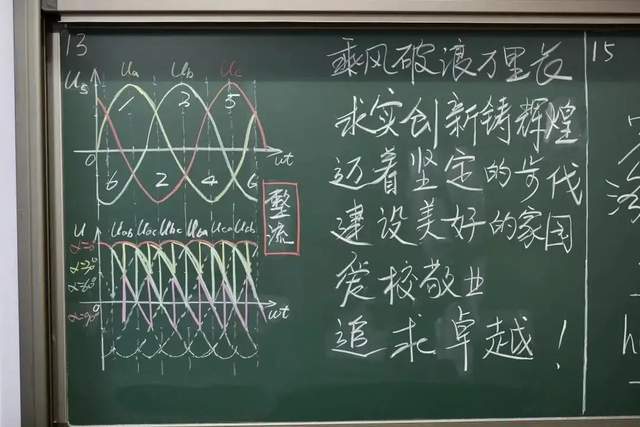 13
Us
Ua Ub Uc
1 3 5
0 ωt
6 2 4 6
整流
U Uab Uac Ubc Uba Uca Ucb
α=0°
α=30°
α=60°
α=90°
0 ωt
乘风破浪万里长
求实创新铸辉煌
迈着坚定的步伐
建设美好的家国
爱校敬业
追求卓越!
15